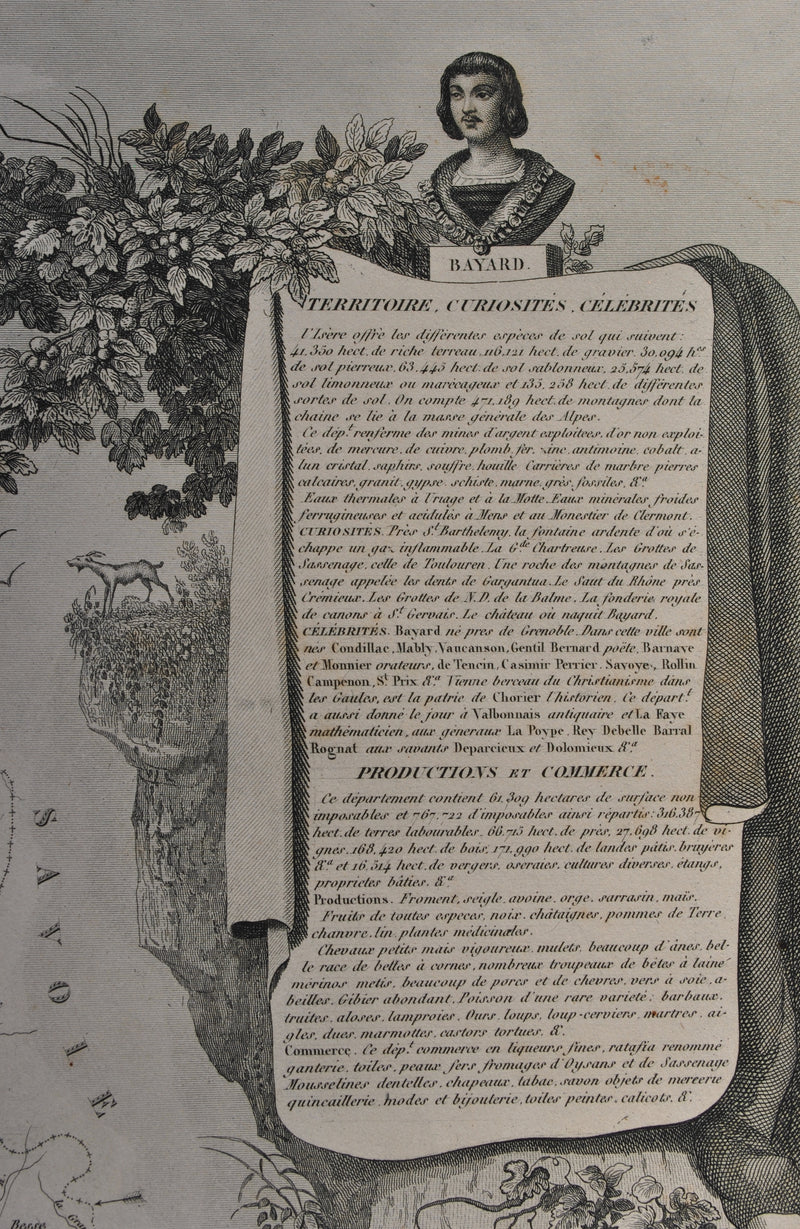 BAYARD.
TERRITOIRE, CURIOSITÉS, CÉLÉBRITÉS
L'Isère offre les différentes espèces de sol qui suivent :
41.350 hect. de riche terreau. 116.121 hect. de gravier. 30.094 h.es
de sol pierreux. 63.443 hect. de sol sablonneux. 23.574 hect. de
sol limonneux ou marécageux et 133.258 hect. de différentes
sortes de sol. On compte 471.189 hect. de montagnes dont la
chaîne se lie à la masse générale des Alpes.
Ce dép.t renferme des mines d'argent exploitées, d'or non exploi-
tées, de mercure, de cuivre, plomb, fer, zinc, antimoine, cobalt, a-
lun cristal, saphirs, souffre, houille Carrières de marbre pierres
calcaires, granit, gypse, schiste, marne, grès, fossiles, &.a
Eaux thermales à Uriage et à la Motte. Eaux minérales froides
ferrugineuses et acidulés à Mens et au Monestier de Clermont.
CURIOSITÉS. Près S.t Barthelemy, la fontaine ardente d'où s'é-
chappe un gaz inflammable. La G.de Chartreuse. Les Grottes de
Sassenage, celle de Toulouren. Une roche des montagnes de Sas-
senage appelée les dents de Gargantua. Le Saut du Rhône près
Crémieux. Les Grottes de N.D. de la Balme. La fonderie royale
de canons à S.t Gervais. Le château où naquit Bayard.
CÉLÉBRITÉS. Bayard né près de Grenoble. Dans cette ville sont
nés Condillac, Mably, Vaucanson, Gentil Bernard poète, Barnave
et Monnier orateurs, de Tencin, Casimir Perrier, Savoye, Rollin
Campenon, S.t Prix &.a Vienne berceau du Christianisme dans
les Gaules, est la patrie de Chorier l'historien. Ce départ.t
a aussi donné le jour à Valbonnais antiquaire et La Faye
mathématicien, aux généraux La Poype, Rey Debelle Barral
Rognat aux savants Deparcieux et Dolomieux &.a
PRODUCTIONS ET COMMERCE.
Ce département contient 61.309 hectares de surface non
imposables et 767.722 d'imposables ainsi répartis: 316.387
hect. de terres labourables. 66.713 hect. de prés, 27.698 hect. de vi-
gnes. 168.420 hect. de bois. 171.990 hect. de landes pâtis, bruyères
&.a et 16.514 hect. de vergers, oseraies, cultures diverses, étangs,
propriétés bâties. &.a
Productions. Froment, seigle, avoine, orge, sarrasin, maïs.
Fruits de toutes espèces, noix, châtaignes, pommes de Terre,
chanvre, lin, plantes médicinales.
Chevaux petits mais vigoureux, mulets, beaucoup d'ânes, bel-
le race de belles à cornes, nombreux troupeaux de bêtes à laine
mérinos métis, beaucoup de porcs et de chevres, vers à soie, a-
beilles. Gibier abondant. Poisson d'une rare variété : barbaux,
truites, aloses, lamproies. Ours, loups, loup-cerviers, martres, ai-
gles, ducs, marmottes, castors tortues. &.
Commerce. Ce dép.t commerce en liqueurs fines, ratafia renommé
ganterie, toiles, peaux fers fromages d'Oysans et de Sassenage
Mousselines dentelles, chapeaux, tabac, savon objets de mercerie
quincaillerie, modes et bijouterie, toiles peintes, calicots. &.
SAVOIE
Besse